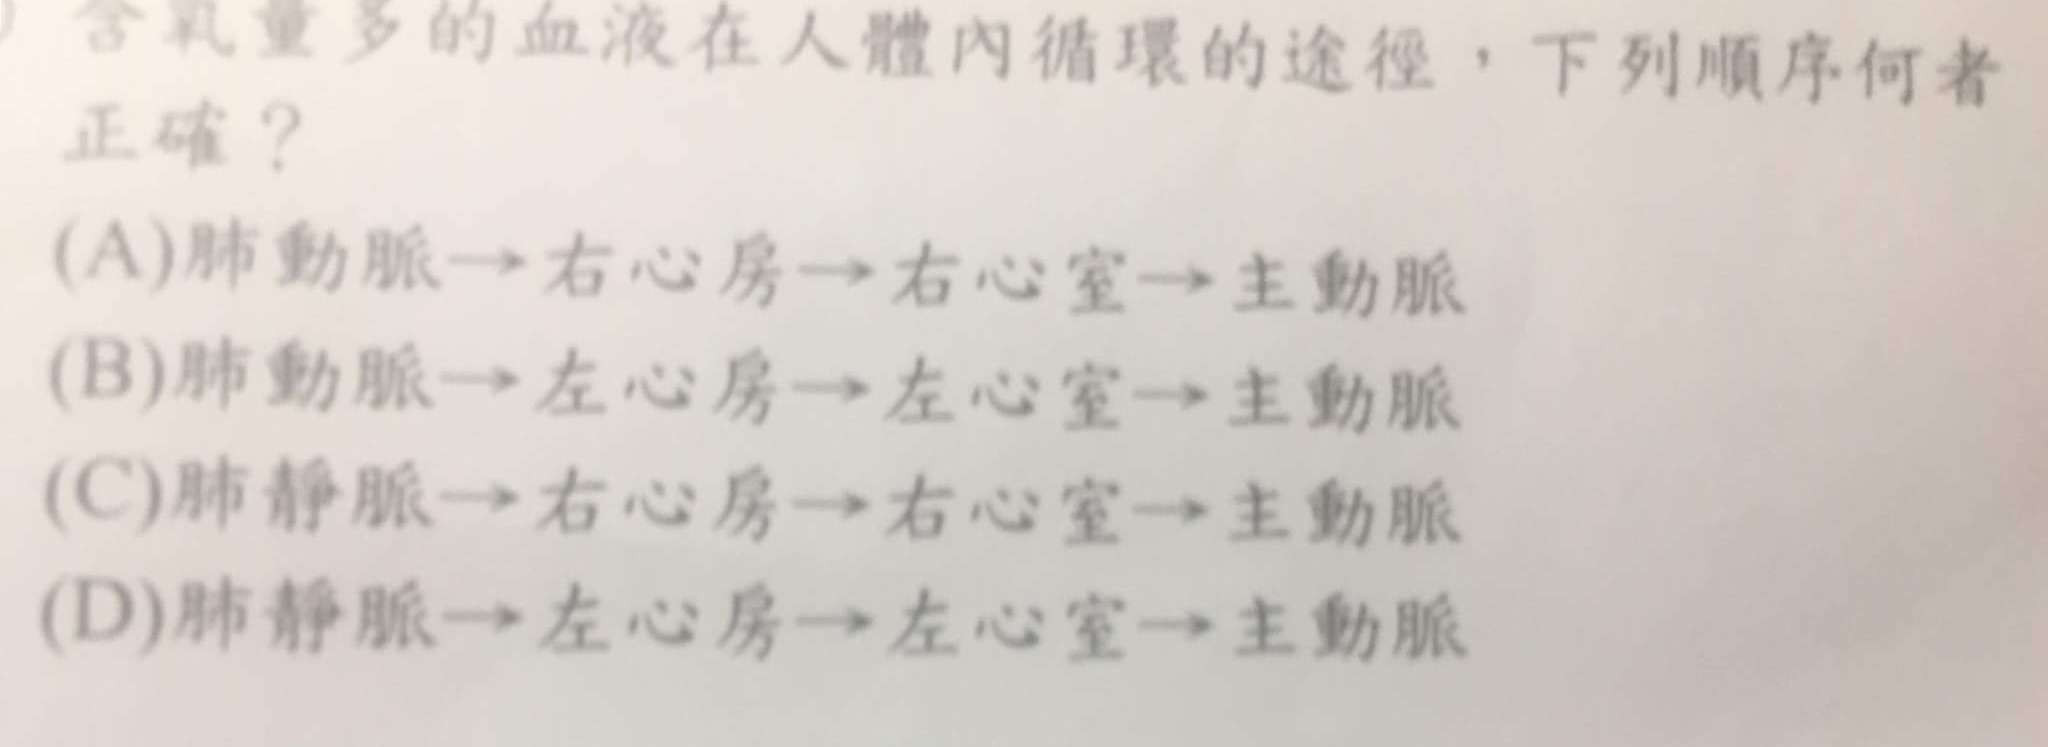 含氧量多的血液在人體內循環的途徑，下列順序何者
正確？
(A)肺動脈→右心房→右心室→主動脈
(B)肺動脈→左心房→左心室→主動脈
(C)肺靜脈→右心房→右心室→主動脈
(D)肺靜脈→左心房→左心室→主動脈